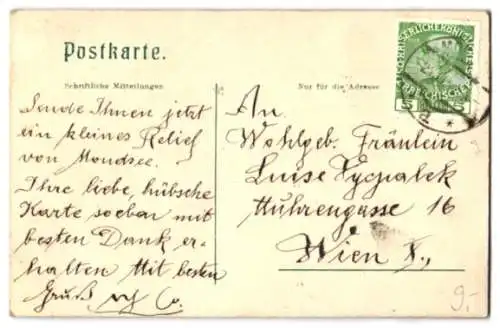 Postkarte.
Schriftliche Mitteilungen
Nur für die Adresse
Sende Ihnen jetzt
ein kleines Relief
von Mondsee.
Ihre liebe, hübsche
Karte soeben mit
besten Dank er-
halten Mit besten
Gruß
An
Wohlgeb. Fräulein
Luise
16
Wien
5 5
9.-